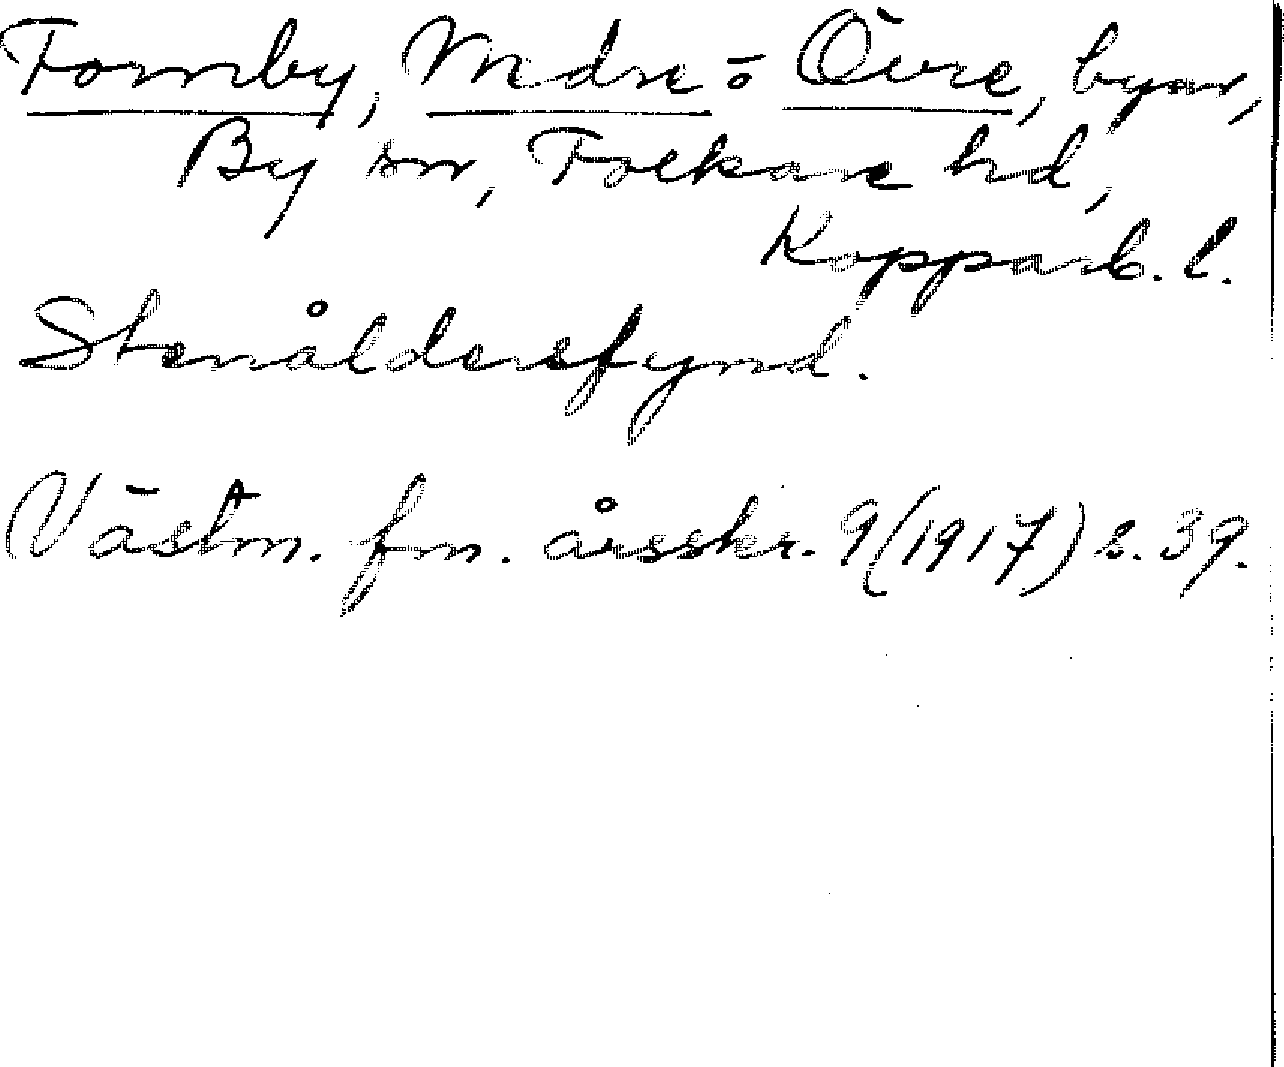 Fornby, Nedre o Övre, byar,
By sn, Folkare hd,
Kopparb. l.
Stenåldersfynd.
Västm. fm. årsskr. 9 (1917) s. 39.